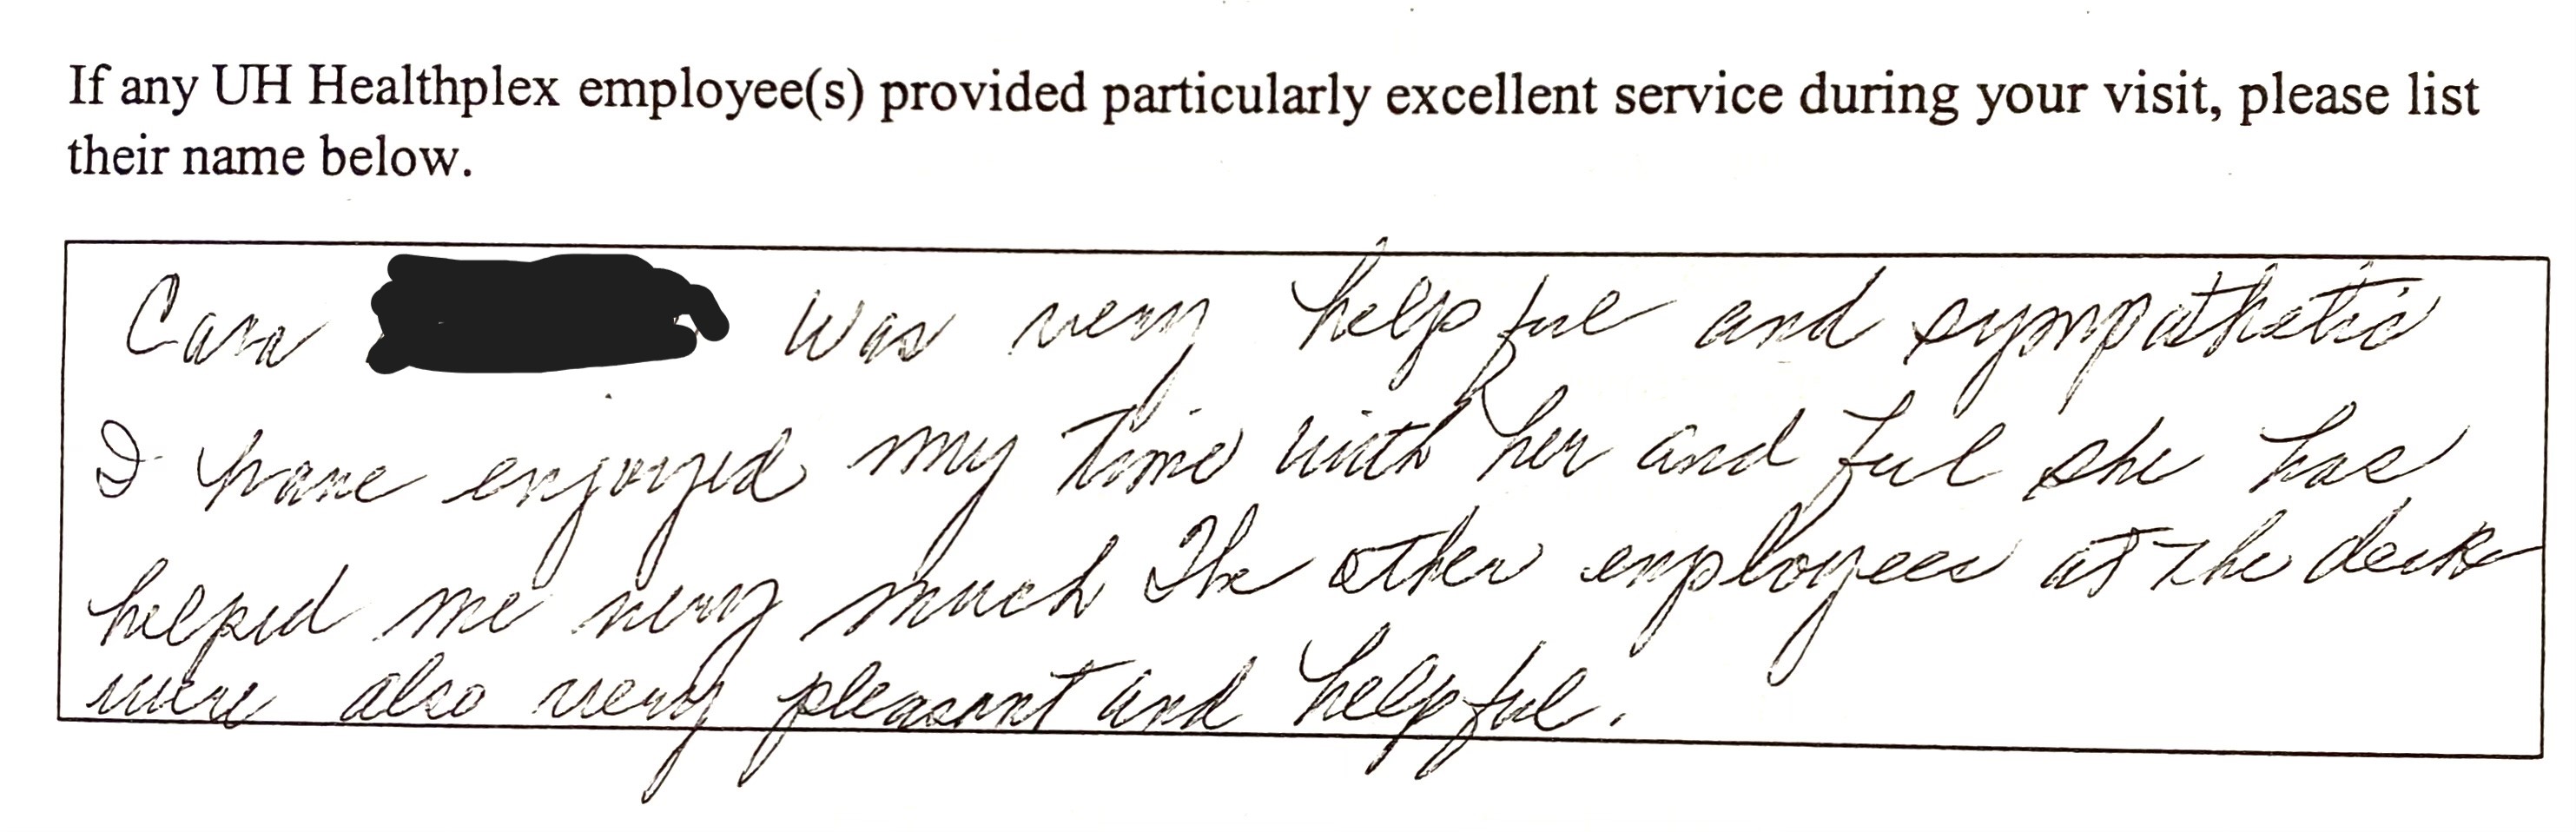 If any UH Healthplex employee(s) provided particularly excellent service during your visit, please list
their name below.
Cara was very helpful and sympathetic
I have enjoyed my time with her and feel she has
helped me very much The other employees at the desk
were also very pleasant and helpful.